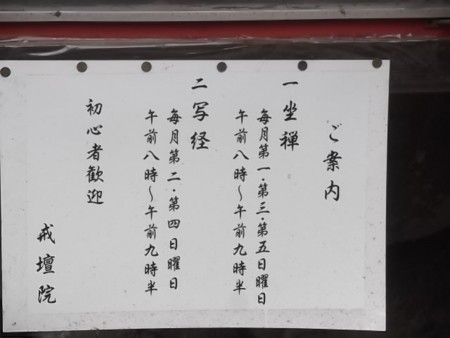 ご案内
一 坐禅
毎月第一・第三・第五日曜日
午前八時～午前九時半
二 写経
毎月第二・第四日曜日
午前八時～午前九時半
初心者歓迎
戒壇院